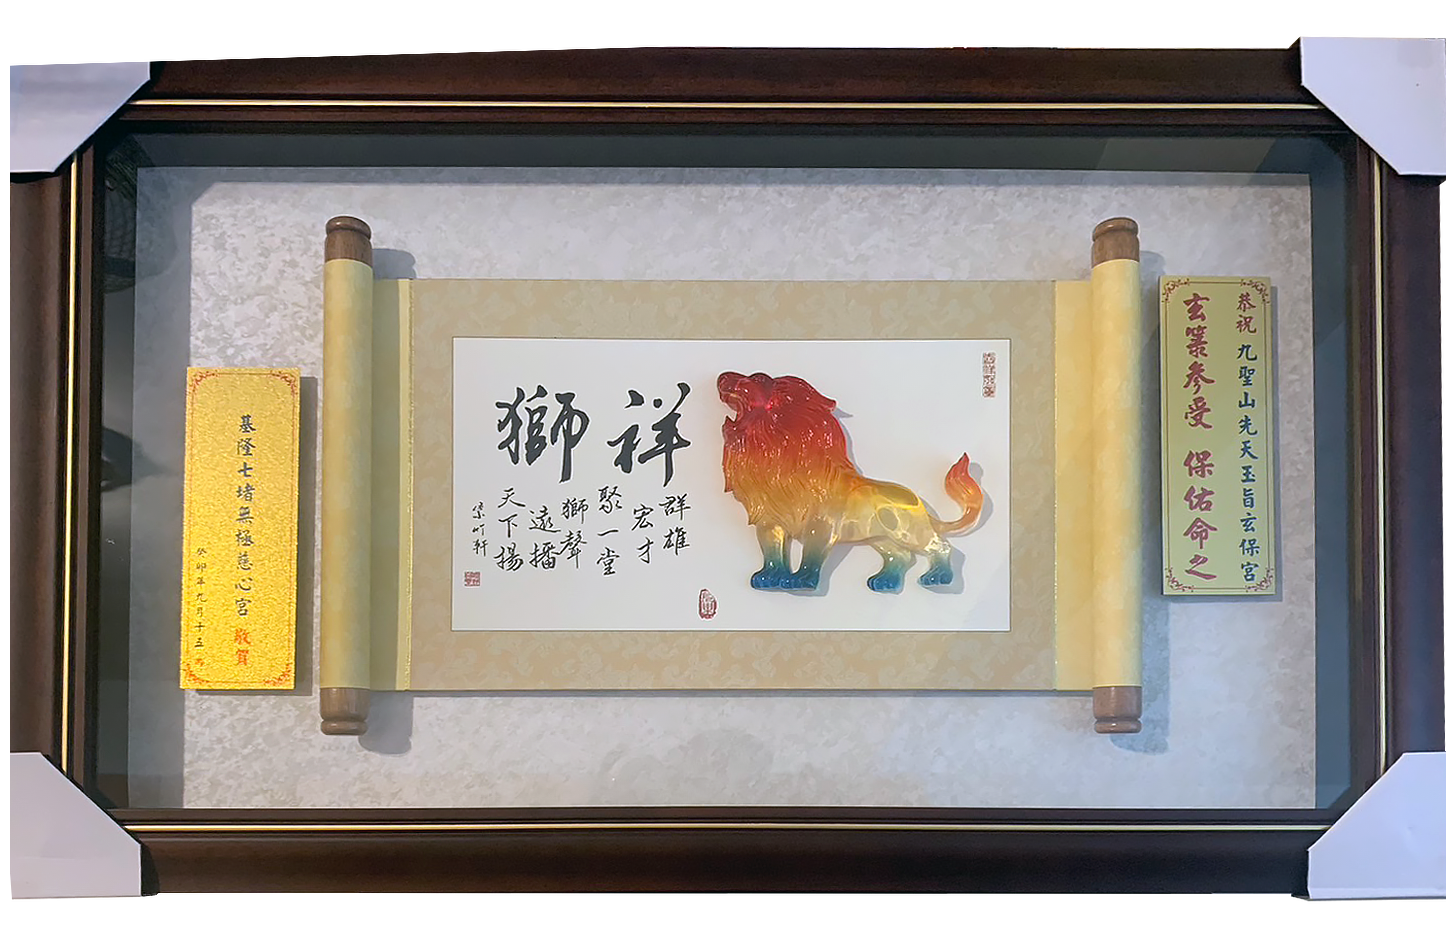 恭祝 九聖山先天玉旨玄保宮
玄策參受 保佑命之
祥獅
群雄
宏才
聚一堂
獅聲
遠播
天下揚
紫竹軒
基隆七堵無極慈心宮 敬賀
癸卯年九月十五